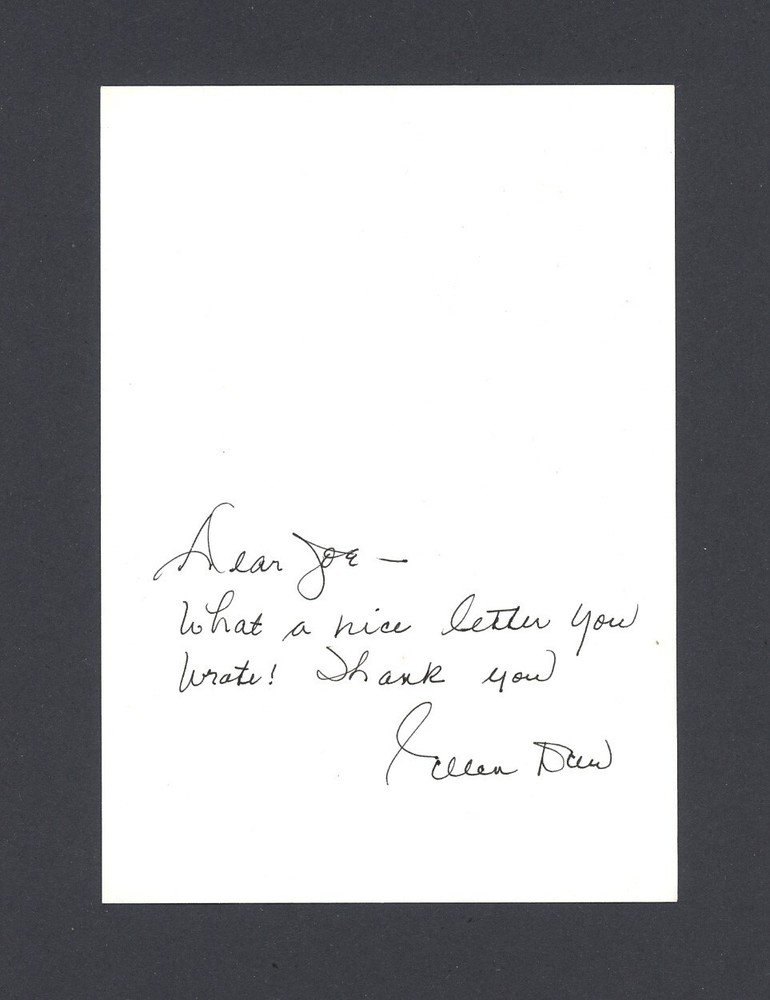 Dear Joe —
What a nice letter you
wrote! Thank you
Ellen